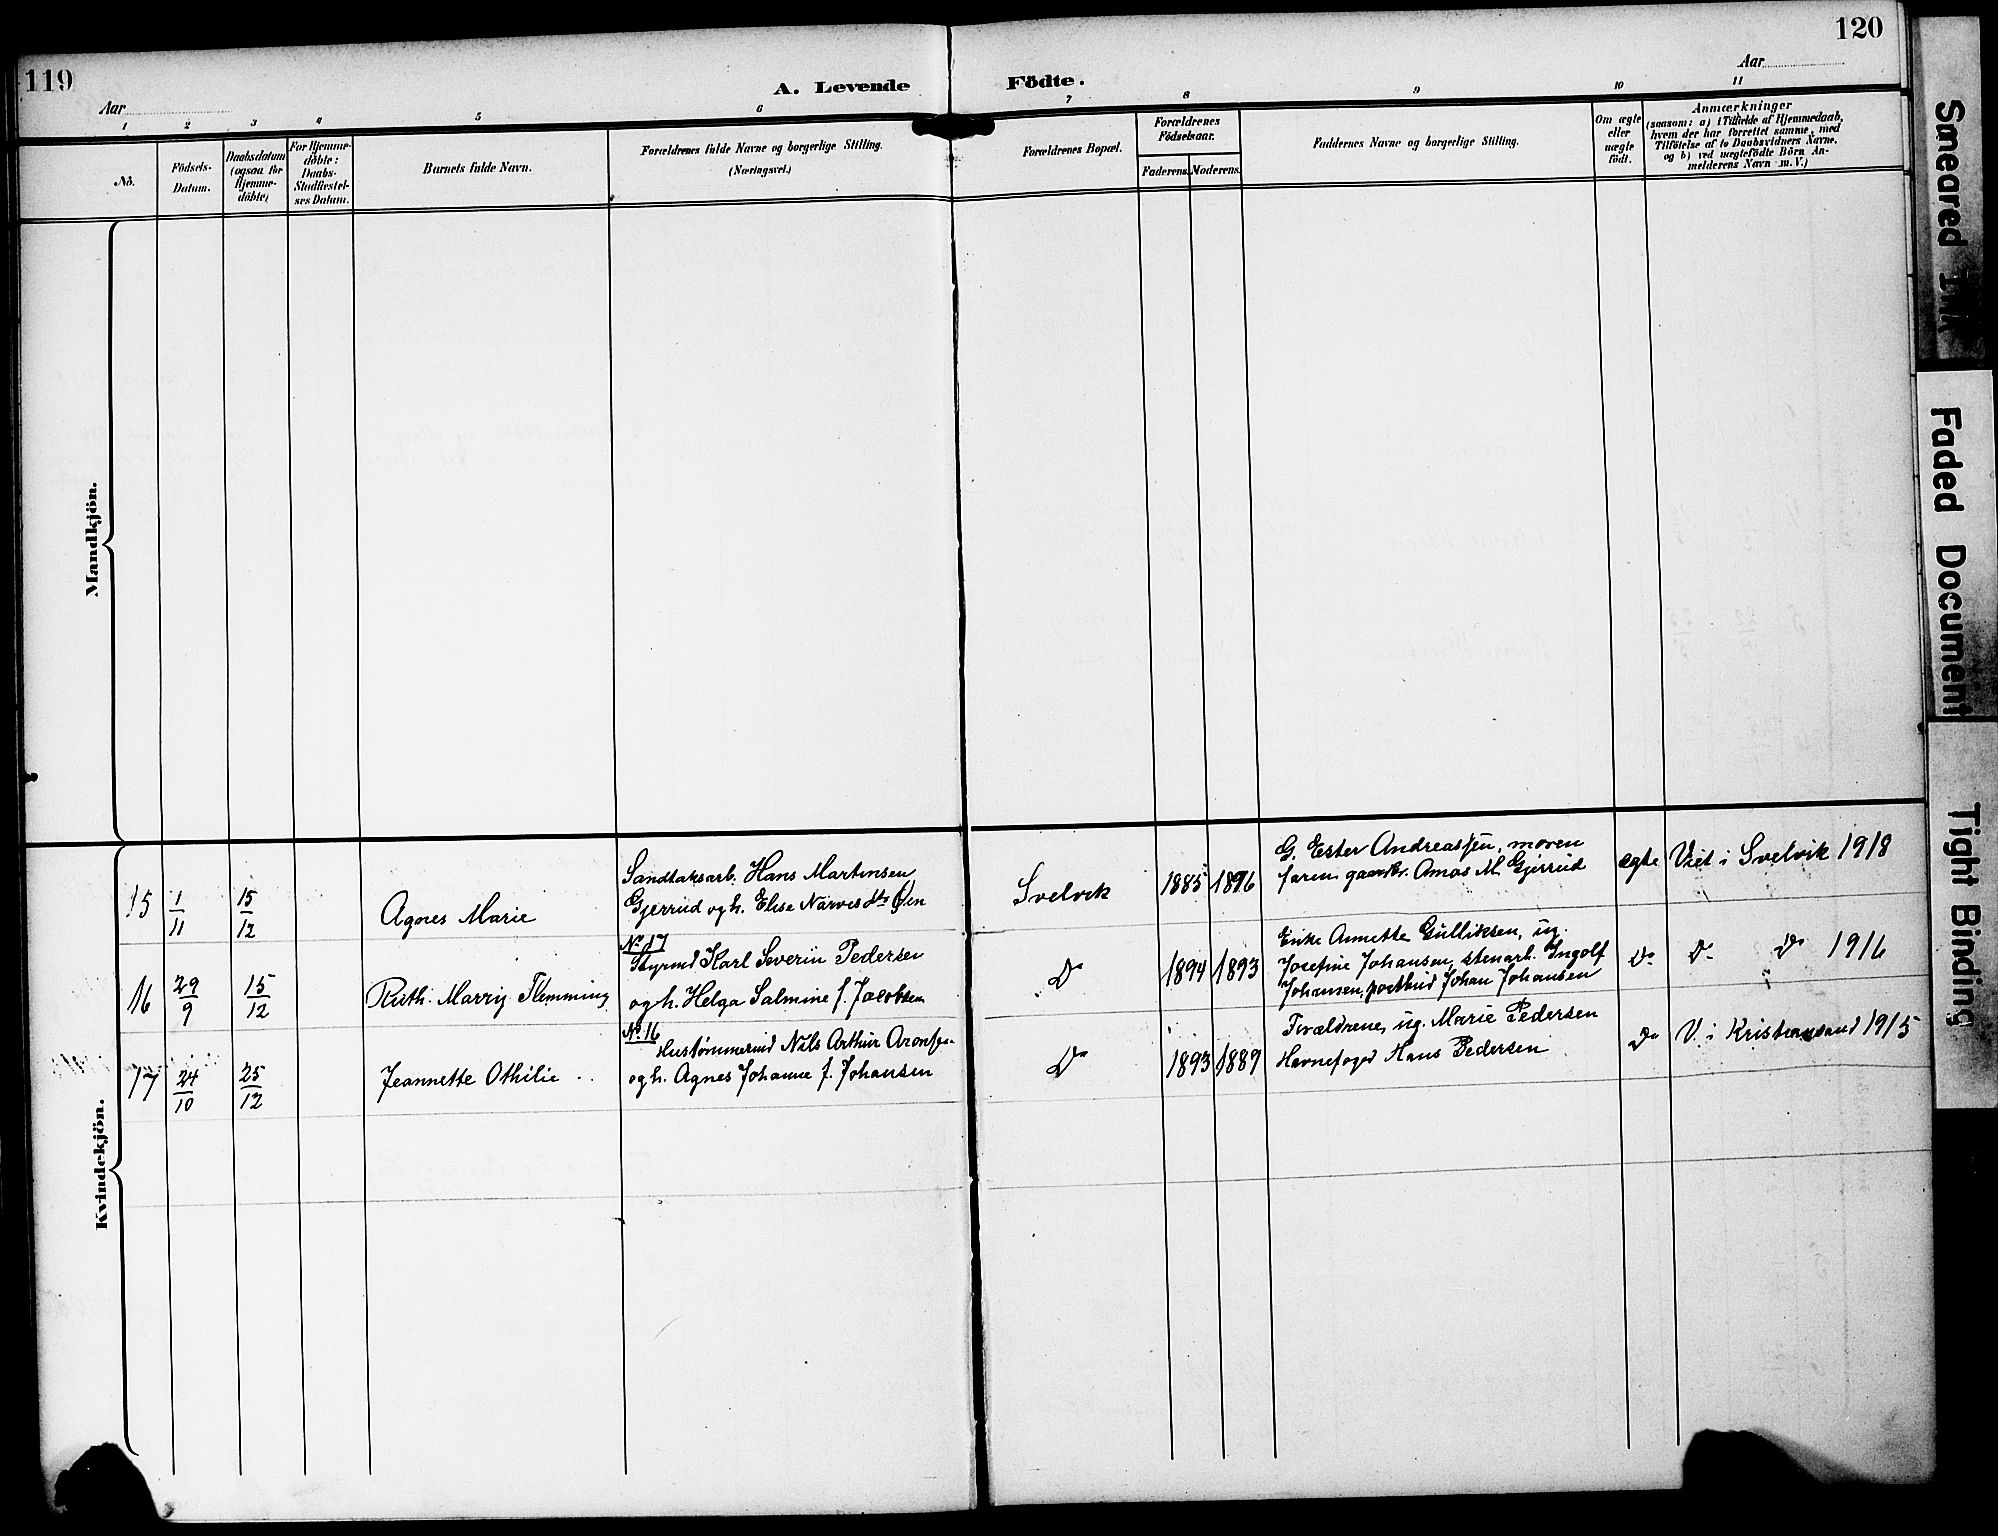 119
120
Aar
A. Levende Födte.
Aar
1 2 3 4 5 6 7 8 9 10 11
No.
Födsels-
Datum.
Daabsdatum
(ogsaa for
Hjemme-
döbte)
For Hjemme-
döbte:
Daabs-
Stadfæstel-
ses Datum.
Barnets fulde Navn.
Forældrenes fulde Navne og borgerlige Stilling.
(Næringsvei.)
Forældrenes Bopæl.
Forældrenes
Födselsaar.
Faderens.
Moderens.
Faddernes Navne og borgerlige Stilling.
Om ægte
eller
uægte
födt.
Anmærkninger
(saasom: a) i Tilfælde af Hjemmedaab,
hvem der har forrettet samme, med
Tilföielse af to Daabsvidners Navne,
og b) ved uægtefödte Börn An-
melderens Navn m. V.)
Mandkjön.
Kvindekjön.
15 1/11 15/12 Agnes Marie
Sandtaksarb. Hans Martinsen
Gjerrud og h. Elise Narvesdtr Øen
Svelvik 1885 1896
G. Ester Andreassen, moren
faren gaardbr. Amos M. Gjerrud
ægte Viet i Svelvik 1918
16 29/9 15/12 Ruth Marry Flemming
No 17
Styrmd Karl Severin Pedersen
og h. Helga Salmine f. Jacobsen
Do 1894 1893
Enke Annette Gulliksen, ug.
Josefine Johansen, stenarb. Ingolf
Johansen, postbud Johan Johansen
Do Do Do 1916
17 24/10 25/12 Jeannette Othilie
No 16
Hustømmermd Nils Arthur Aronsen
og h. Agnes Johanne f. Johansen
Do 1893 1889
Forældrene, ug. Marie Pedersen
Havnefoged Hans Pedersen
Do V. i Kristiansand 1915
Smeared Ink
Faded Document
Tight Binding